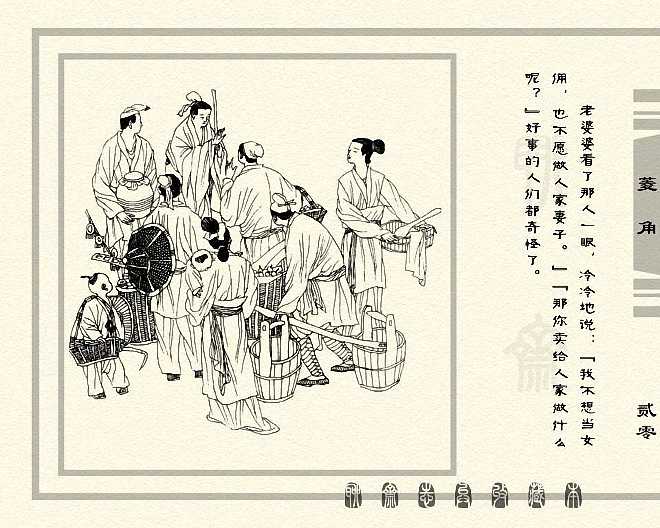 老婆婆看了那人一眼，冷冷地说：「我不想当女
佣，也不愿做人家妻子。」「那你卖给人家做什么
呢？」好事的人们都奇怪了。
菱角
贰零